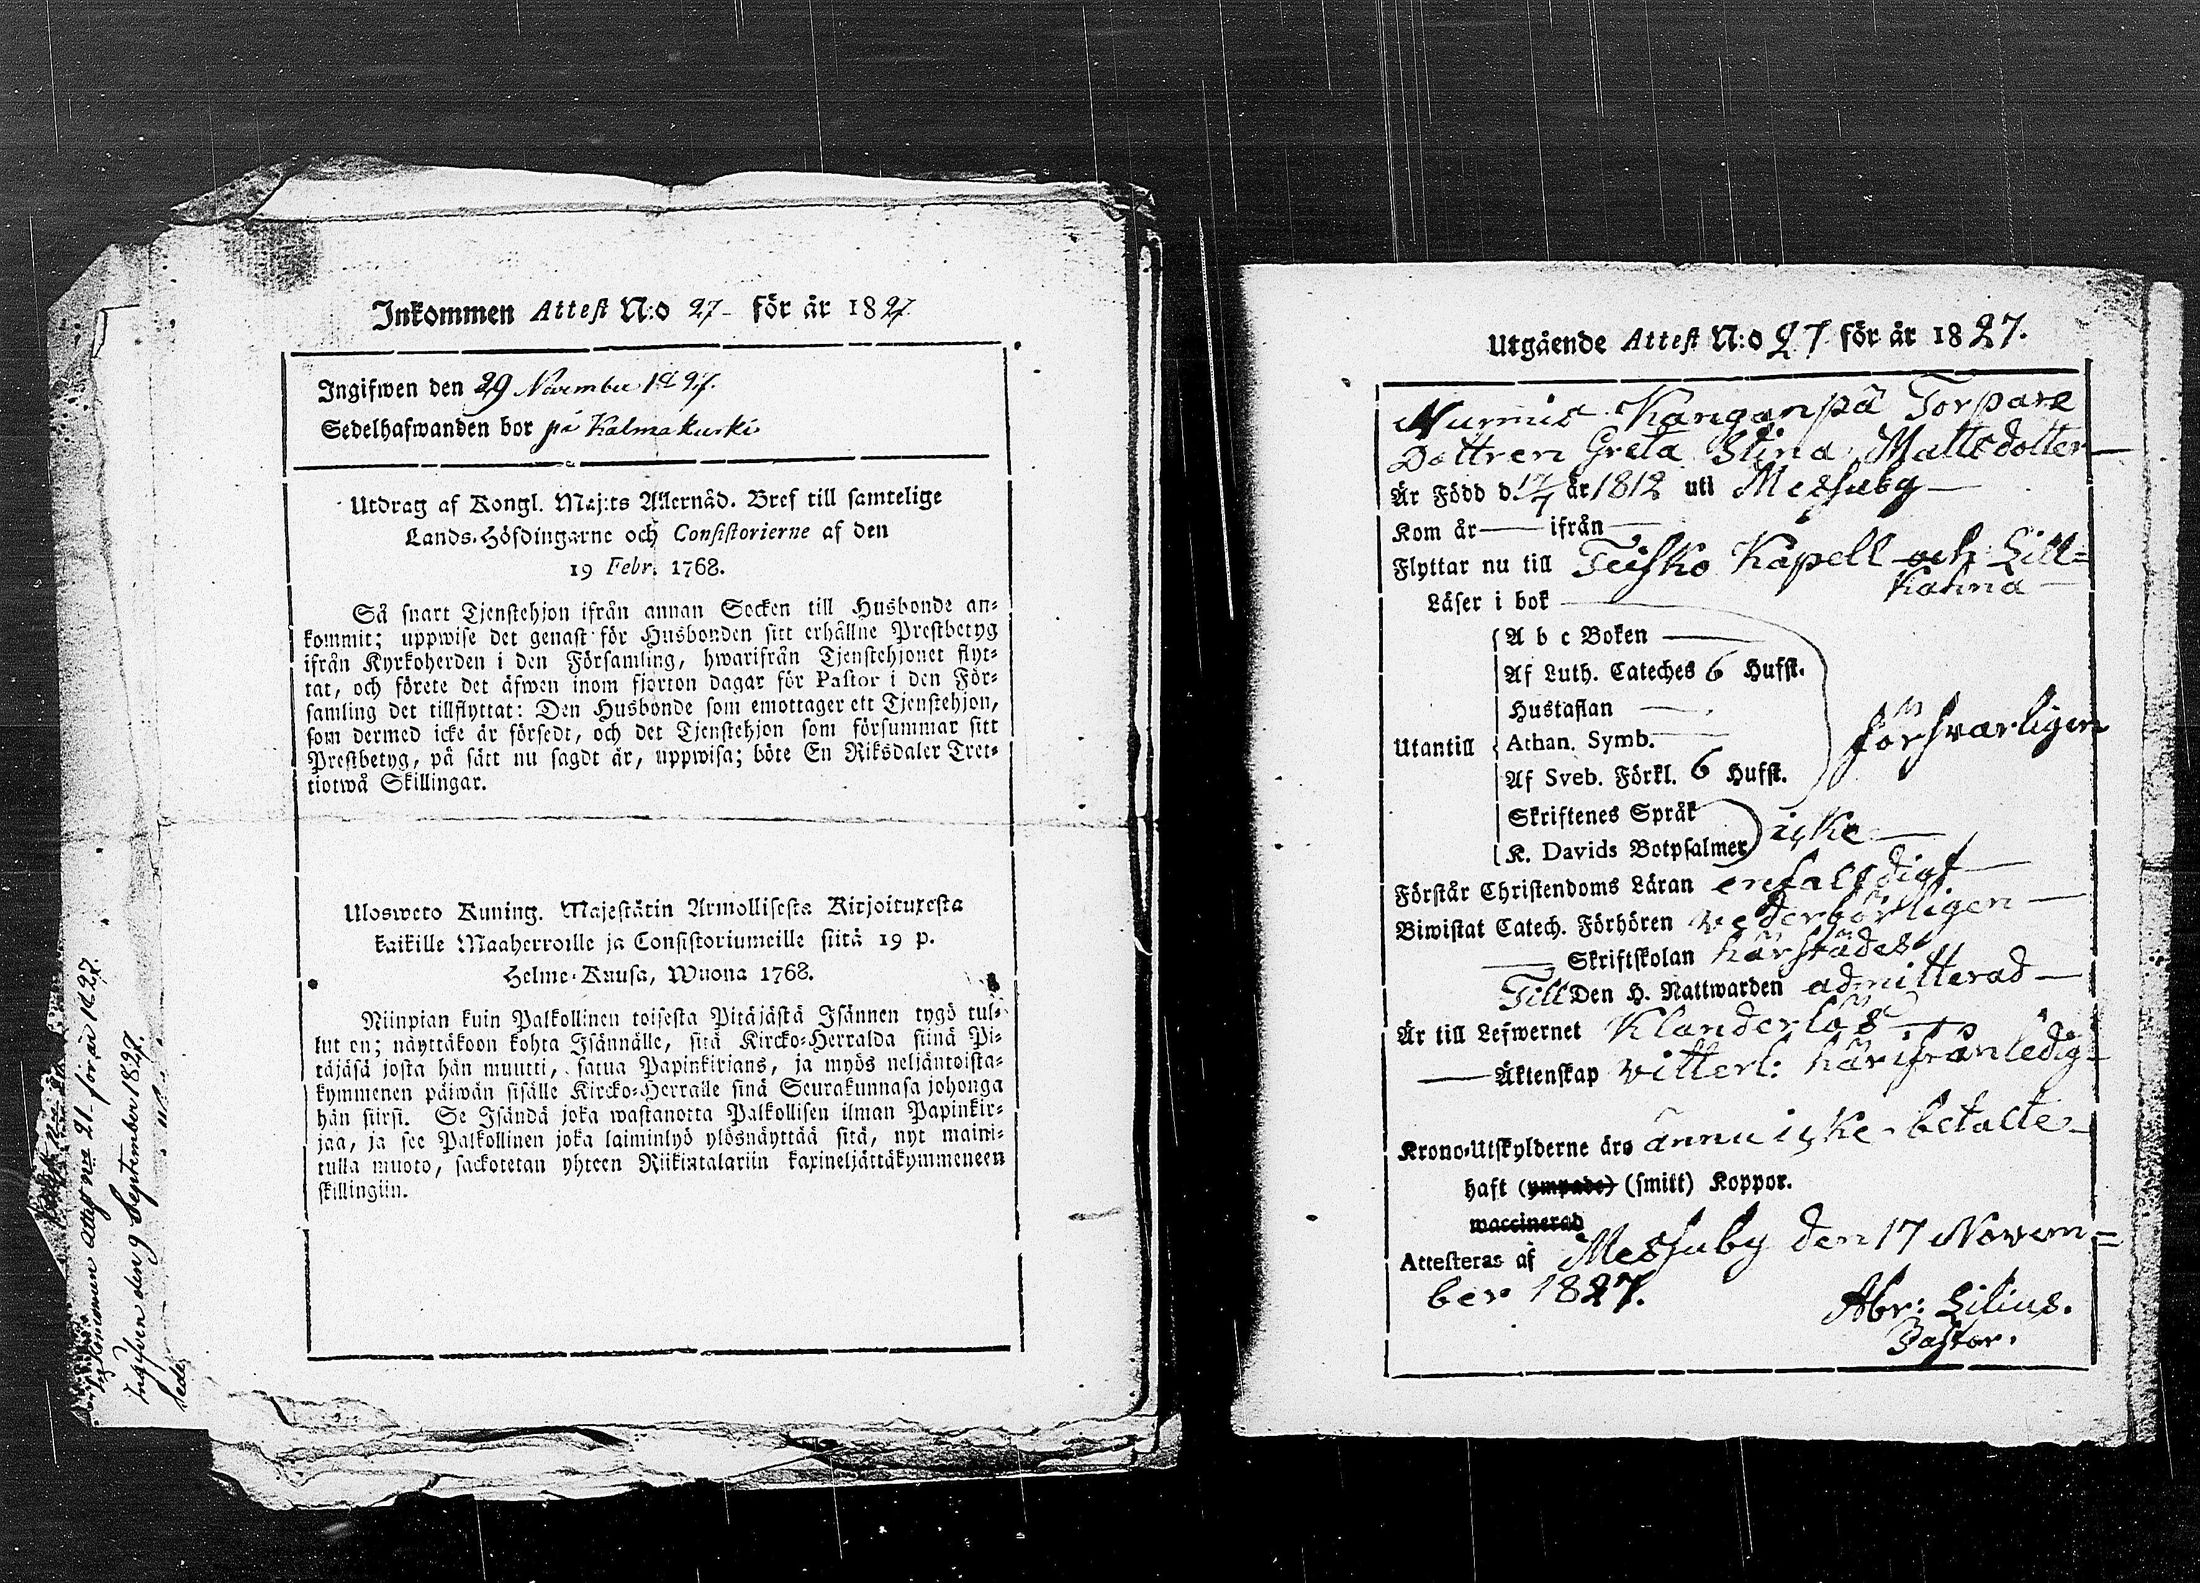 Inkommen Attest N:o 27 - för år 1827
Ingifwen den 29 November 1827.
Sedelhafwanden bor på Kalmakurki
Utdrag af Kongl. Maj:ts Allernåd. Bref till samtelige
Lands-Höfdingarne och Consistorierne af den
19 Febr. 1768.
Så snart Tjenstehjon ifrån annan Socken till Husbonde an-
kommit; uppwise det genast för Husbonden sitt erhållne Prestbetyg
ifrån Kyrkoherden i den Församling, hwarifrån Tjenstehjonet flyt-
tat, och förete det äfwen inom fjorton dagar för Pastor i den För-
samling det tillflyttat: Den Husbonde som emottager ett Tjenstehjon,
som dermed icke är försedt, och det Tjenstehjon som försummar sitt
Prestbetyg, på sätt nu sagdt är, uppwisa; böte En Riksdaler Tret-
tiotwå Skillingar.
Ulosweto Kuning. Majestätin Armollisesta Kirjoituxesta
kaikille Maaherroille ja Consistoriumeille siitä 19 p.
Helme-Kuusa, Wuona 1768.
Niinpian kuin Palkollinen toisesta Pitäjästä Isännen tygö tul-
lut on; näyttäkoon kohta Isännälle, sitä Kircko-Herralda siinä Pi-
täjäsä josta hän muutti, saatua Papinkirjans, ja myös neljäntoista-
kymmenen päiwän sisälle Kircko-Herralle sinä Seurakunnasa johonga
hän siirsi. Se Isändä joka wastanotta Palkollisen ilman Papinkir-
jaa, ja see Palkollinen joka laiminlyö ylösnäyttää sitä, nyt maini-
tulla muoto, sackotetan yhteen Riikintalariin kaxineljättäkymmeneen
skillingiin.
Inkommen Attest No 21 för år 1827.
Ingifven den 9 September 1827.
Sede
Utgående Attest N:o 27 för år 1827.
Nurmis Kanganpä Torpare
Dottren Greta Stina Mattsdotter
Är Född d. 17/7 år 1812 uti Messuby
Kom år — ifrån —
Flyttar nu till Teisko Kapell och Lill=
kahna
Läser i bok
Utantill
A b c Boken
Af Luth. Cateches 6 Hufst.
Hustaflan
Athan. Symb.
Af Sveb. Förkl. 6 Hufst.
försvarligen
Skriftenes Språk
K. Davids Botpsalmer
icke
Förstår Christendoms Läran enfaldigt
Biwistat Catech. Förhören vederbörligen
— Skriftskolan härstädes
Till Den H. Nattwarden admitterad
Är till Lefwernet Klanderlös
— Äktenskap vitterl: härifrån ledig
Krono-Utskylderne äro ännu icke betalte
haft (ympade) (smitt) Koppor.
waccinerad
Attesteras af Messuby den 17 Novem=
ber 1827.
Abr: Lilius.
Pastor.